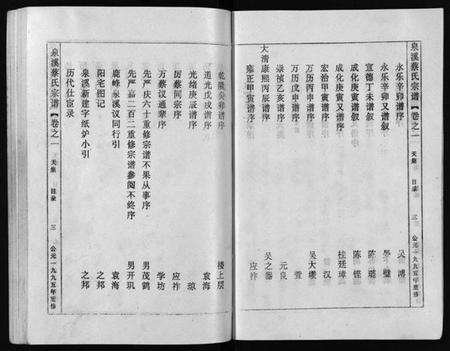 泉溪蔡氏宗谱【卷之一 天集 目录 三 公元一九九五年重修
永乐辛卯谱序 吴溥
永乐辛卯又谱叙
宣德丁未谱叙 陈璲
成化庚寅谱叙 陈铨
成化庚寅又谱序 桂廷璋
宏治甲寅谱序 汉
万历丙申谱序 吴大
万历戊申谱序
崇祯乙亥谱序 元良
大清康熙丙辰谱序 吴之器
雍正甲寅谱序 应祚
乾隆癸卯谱序 楼上层
道光戊戌谱序 袁海
光绪庚辰谱序 琼
厉蔡同宗序 应祚
万蔡汉通辈序 学坊
先严庆六十重修宗谱不果从事序 男茂鹤
先严嘉二百二重修宗谱参阅不终序 男开玑
鹿峰泉溪议同行引 袁海
阳宅图记 之邦
泉溪新建字纸炉小引 之邦
历代仕宦录
泉溪蔡氏宗谱【卷之一 天集 目录 三 公元一九九五年重修